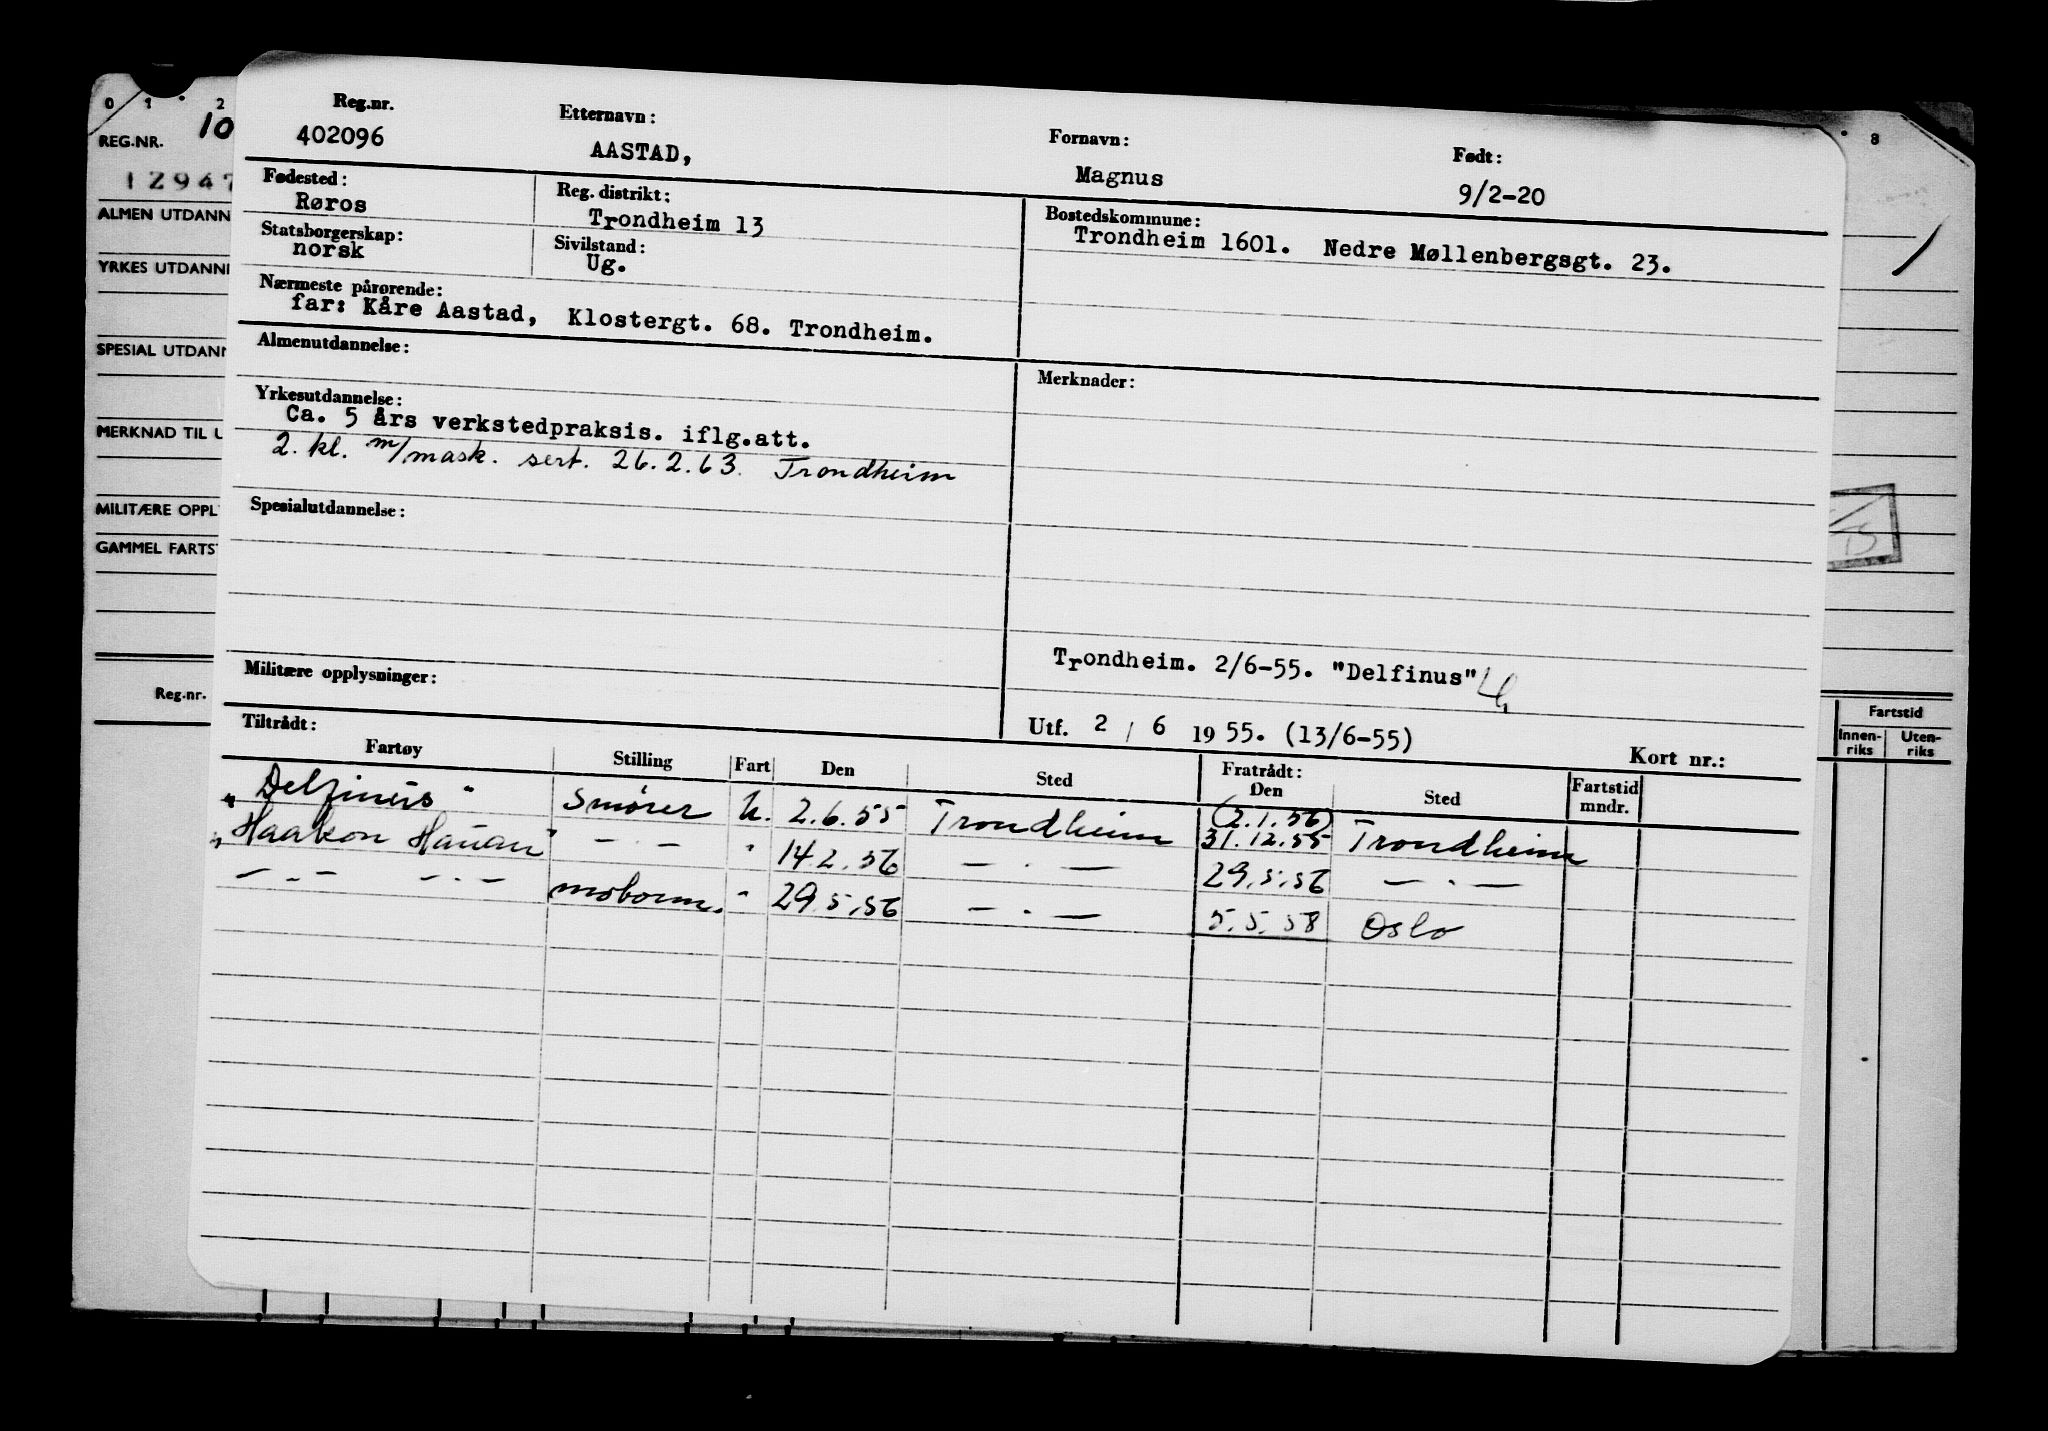 Reg.nr. Etternavn: Fornavn: Født:
402096 AASTAD, Magnus 9/2-20
Fødested: Reg. distrikt: Bostedskommune:
Røros Trondheim 13 Trondheim 1601. Nedre Møllenbergsgt. 23.
Statsborgerskap: Sivilstand:
norsk Ug.
Nærmeste pårørende:
far: Kåre Aastad, Klostergt. 68. Trondheim.
Almenutdannelse: Merknader:
Yrkesutdannelse:
Ca. 5 års verkstedpraksis. iflg.att.
2. kl. m/mask. sert. 26.2.63. Trondheim
Spesialutdannelse:
Trondheim. 2/6-55. "Delfinus"
Militære opplysninger:
Utf. 2 / 6 1955. (13/6-55) Kort nr.:
Tiltrådt: Fratrådt:
Fartøy Stilling Fart Den Sted Den Sted Fartstid mndr.
"Delfinus" Smører U. 2.6.55 Trondheim (2.1.56) 31.12.55 Trondheim
"Haakon Hauan" — . — " 14.2.56 — . — 29.5.56 — . —
— . — — . — " 29.5.56 — . — 5.5.58 Oslo
0 1 2 8
REG.NR. 10
12947
ALMEN UTDANN
YRKES UTDANNI
SPESIAL UTDANN
MERKNAD TIL U
MILITÆRE OPPL
GAMMEL FARTS
Reg.nr.
Fartstid
Innen-riks Uten-riks